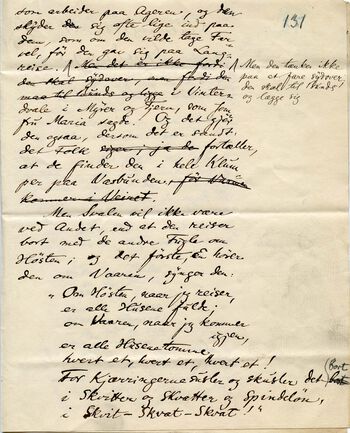 131
som arbeider paa Ageren, og den
skyder sig ofte lige ind paa
dem, som om den vilde tage Far-
vel, før den gaar sig paa Lang-
reise. Men det er ikke fordi
den skal sydover, men fordi den
maa til Bunds og ligge i Vinter-
dvale i Myrer og Tjern, som Jom-
fru Maria sagde. Og det gjør
den ogsaa, dersom det er sandt,
det Folk siger, ja da fortæller,
at de finder den i hele Klum-
per paa Vasbunden, før Vaaren
kommer i Veiret.
Men den tænker ikke
paa at fare sydover,
den skal til Bunds
og lægge sig
Men Svalen vil ikke være
ved Andet, end at den reiser
bort med de andre Fugle om
Høsten, og det første, En hører
den om Vaaren, synger den:
"Om Høsten, naar jeg reiser,
er alle Husene fulde;
om Vaaren, naar jeg kommer
igjen,
er alle Husene tomme,
hvert et, hvert et, hvert et!
For Kjærringerne susler og skusler det bort
(Bort
i Skvitter og Skvatter og Spindeløn,
i Skvit-Skvat-Skvat!"